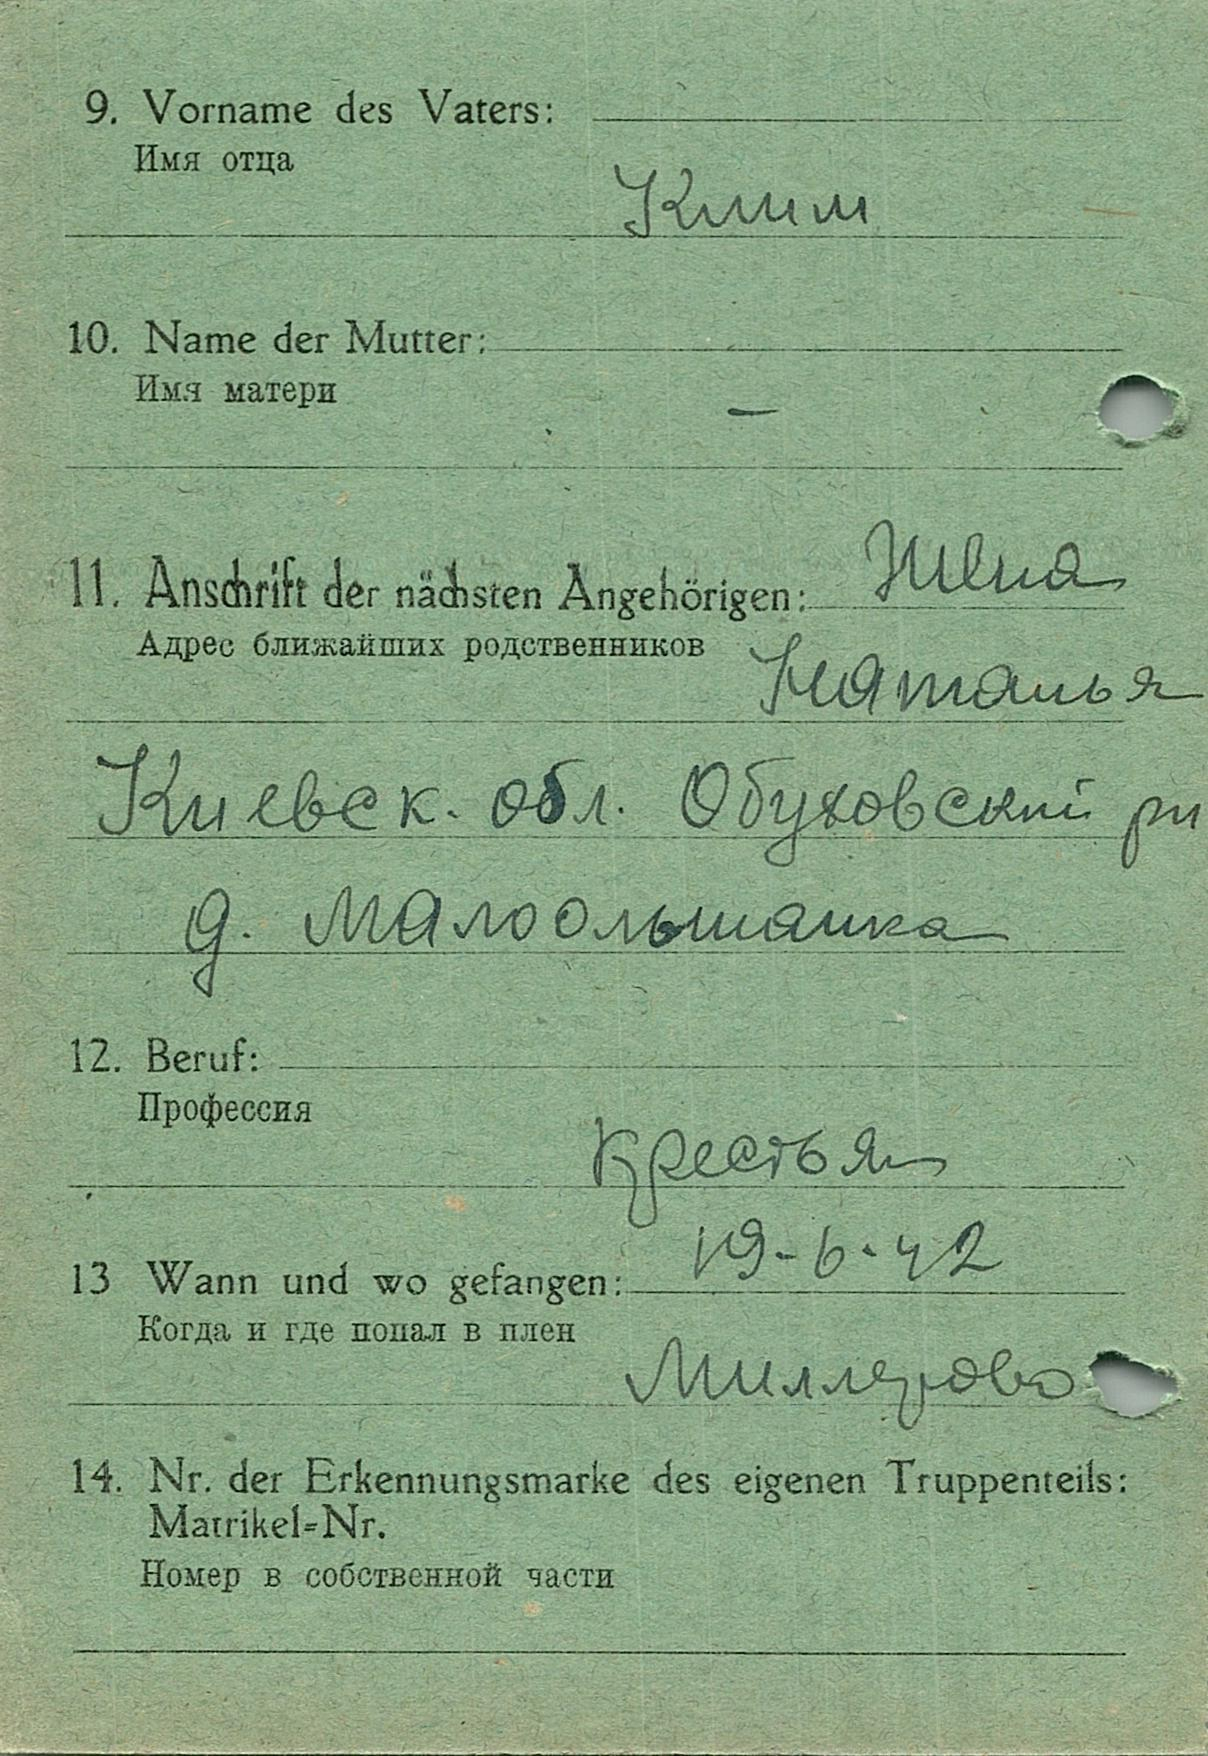 9. Vorname des Vaters:
Имя отца
Клим
10. Name der Mutter:
Имя матери
—
11. Anschrift der nächsten Angehörigen: Жена
Адрес ближайших родственников
Наталья
Киевск. обл. Обуховский рн
д. Малоольшанка
12. Beruf:
Профессия
Крестьян
19-6-42
13 Wann und wo gefangen:
Когда и где попал в плен
Миллерово
14. Nr. der Erkennungsmarke des eigenen Truppenteils:
Matrikel=Nr.
Номер в собственной части